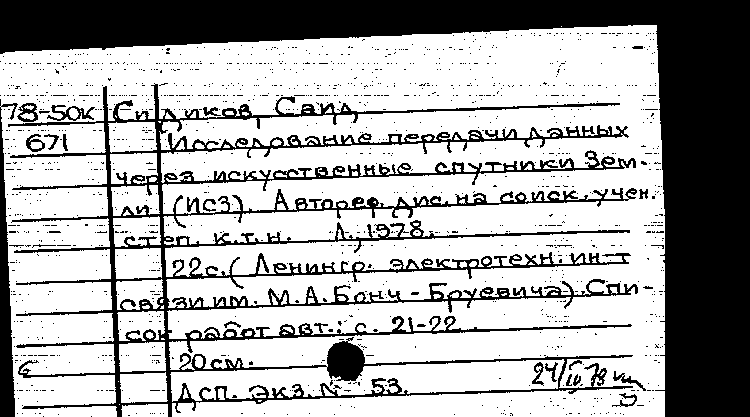 78-50к Сидиков, Саид
671 Исследование передачи данных
через искусственные спутники Зем-
ли (ИСЗ). Автореф. дис. на соиск. учен.
степ. к.т.н. Л., 1978.
22с. (Ленингр. электротехн. ин-т
связи им. М.А. Бонч-Бруевича). Спи-
сок работ авт.: с. 21-22.
20 см.
Дсп. Экз. № 53. 24/IV 78